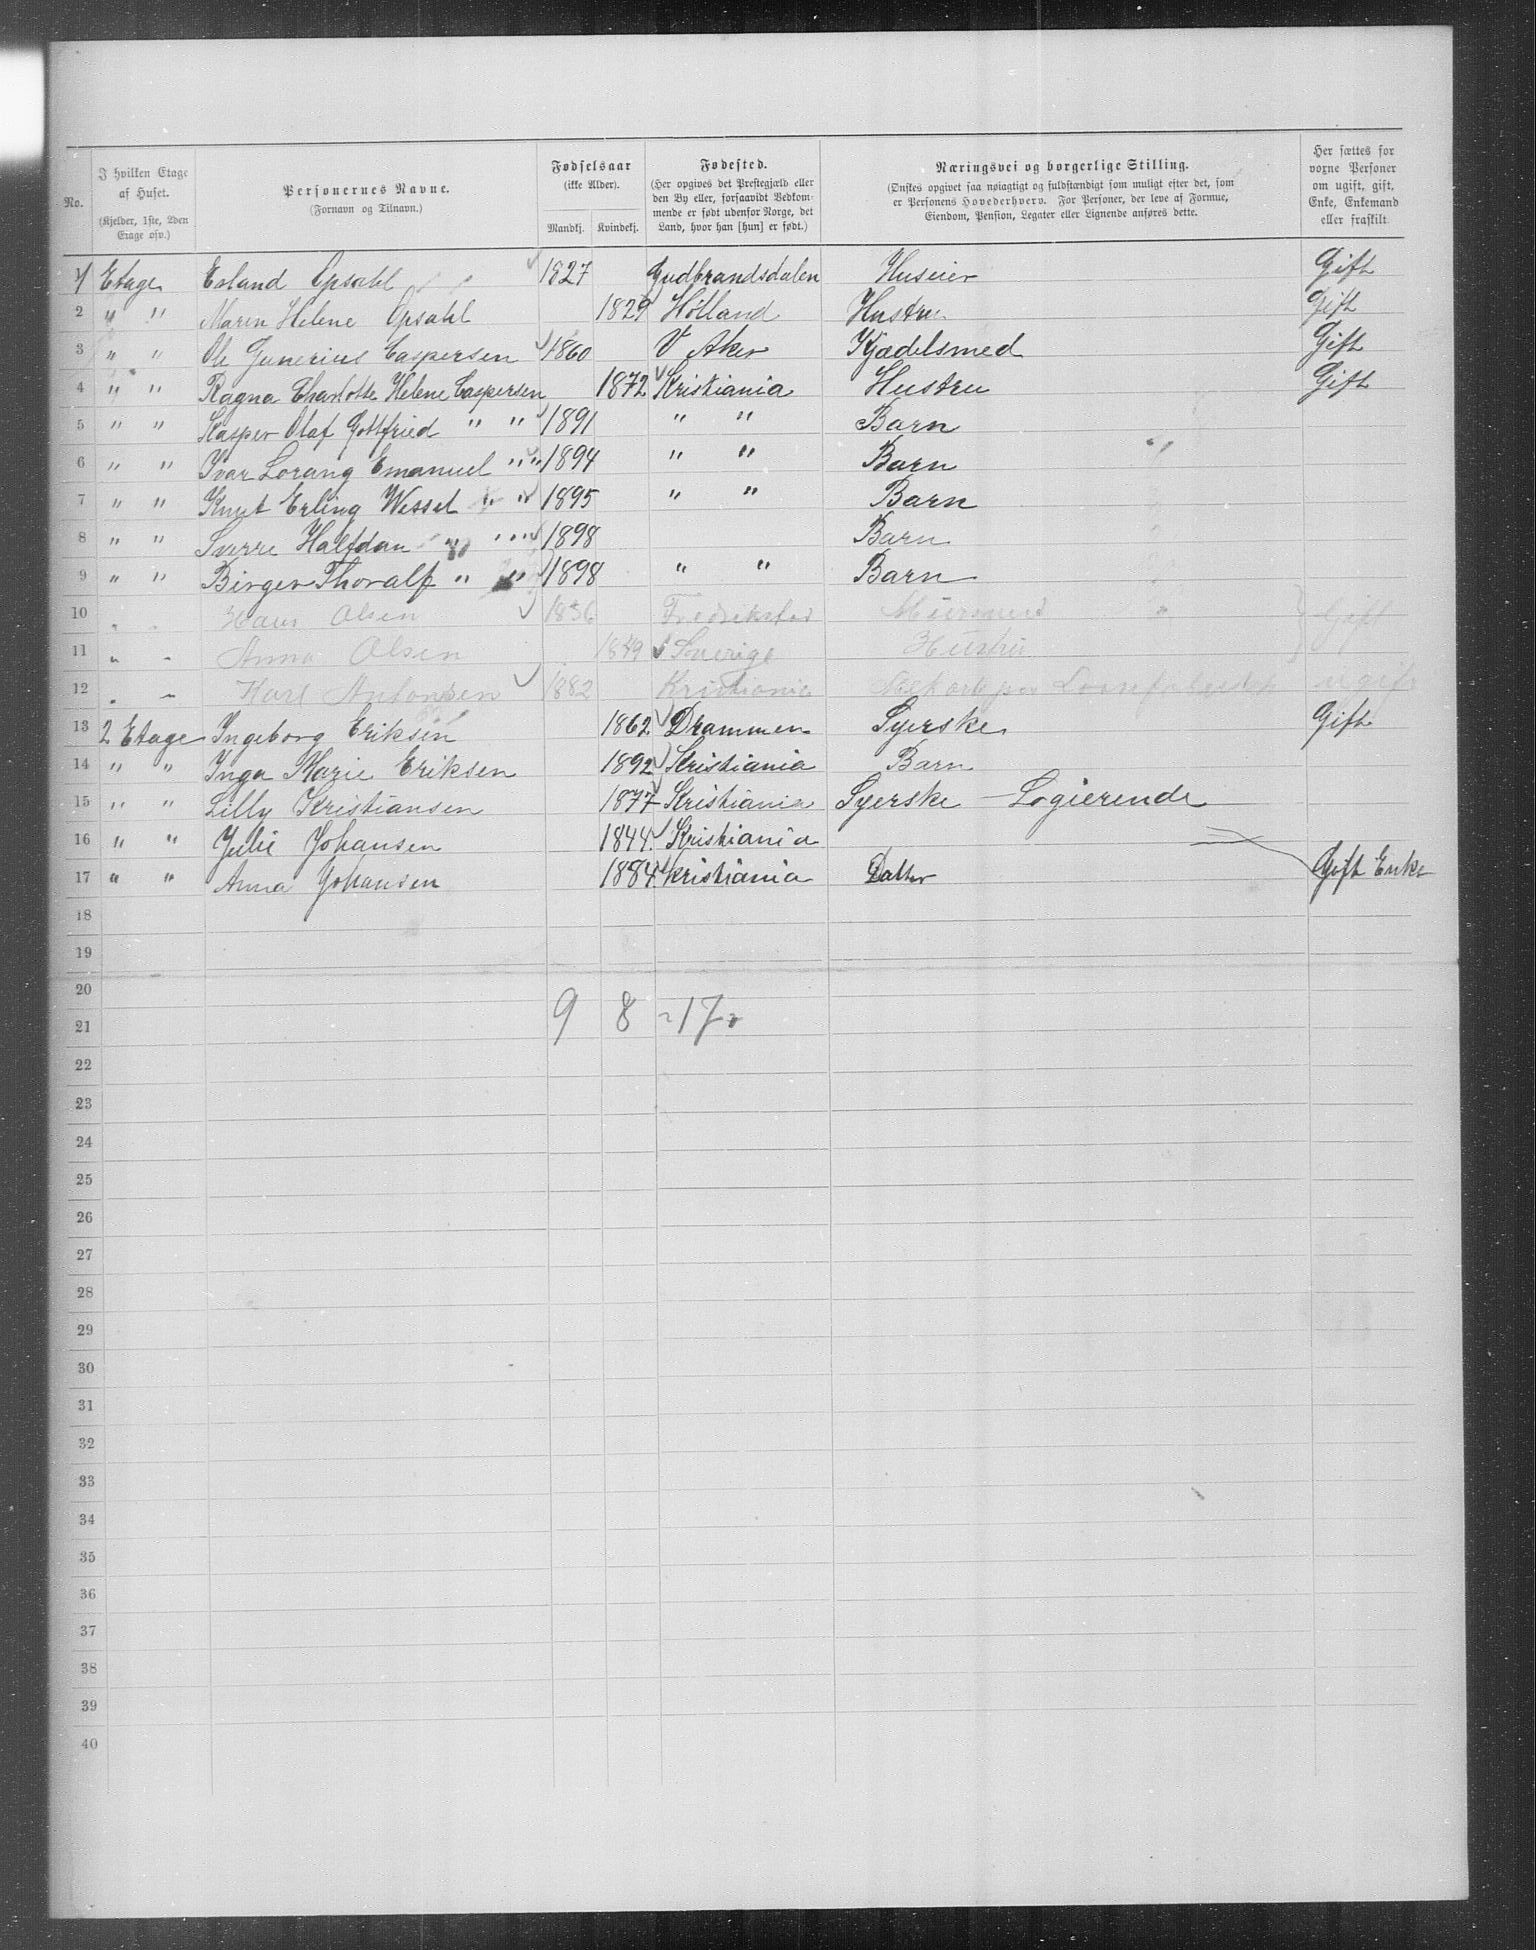 No.
I hvilken Etage af Huset. (Kjelder, 1ste, 2den Etage osv.)
Personernes Navne. (Fornavn og Tilnavn.)
Fødselsaar (ikke Alder). Mandkj. Kvindekj.
Fødested. (Her opgives det Prestegjæld eller den By eller, forsaavidt Vedkommende er født udenfor Norge, det Land, hvor han [hun] er født.)
Næringsvei og borgerlige Stilling. (Ønskes opgivet saa nøiagtigt og fuldstændigt som muligt efter det, som er Personens Hovederhverv. For Personer, der leve af Formue, Eiendom, Pension, Legater eller Lignende anføres dette.
Her sættes for voxne Personer om ugift, gift, Enke, Enkemand eller fraskilt.
1 Etage Erland Opsahl 1827 Gudbrandsdalen Huseier Gift
2 " " Maren Helene Opsahl 1829 Hølland Hustru Gift
3 " " Ole Gunerius Caspersen 1860 V Aker Kjædelsmed Gift
4 " " Ragna Charlotte Helene Caspersen 1872 Kristiania Hustru Gift
5 " " Kasper Olaf Gottfried " " 1891 " " Barn
6 " " Ivar Lorang Emanuel " " 1894 " " Barn
7 " " Knut Erling Wessel " " 1895 " " Barn
8 " " Sverre Halfdan " " 1898 Barn
9 " " Birger Thoralf " " 1898 " " Barn
10 " " Hans Olsen 1836 Fredrikstad Murmand Gift
11 " " Anna Olsen 1849 Sverige Hustru
12 " " Karl Antonsen 1882 Kristiania ugift
13 2 Etage Ingeborg Eriksen 1862 Drammen Syerske Gift
14 " " Inga Marie Eriksen 1892 Kristiania Barn
15 " " Lilly Kristiansen 1877 Kristiania Syerske - Logierende
16 " " Julie Johansen 1844 Kristiania
17 " " Anna Johansen 1884 Kristiania Datter Gift Enke
18
19
20
9 8 = 17
21
22
23
24
25
26
27
28
29
30
31
32
33
34
35
36
37
38
39
40